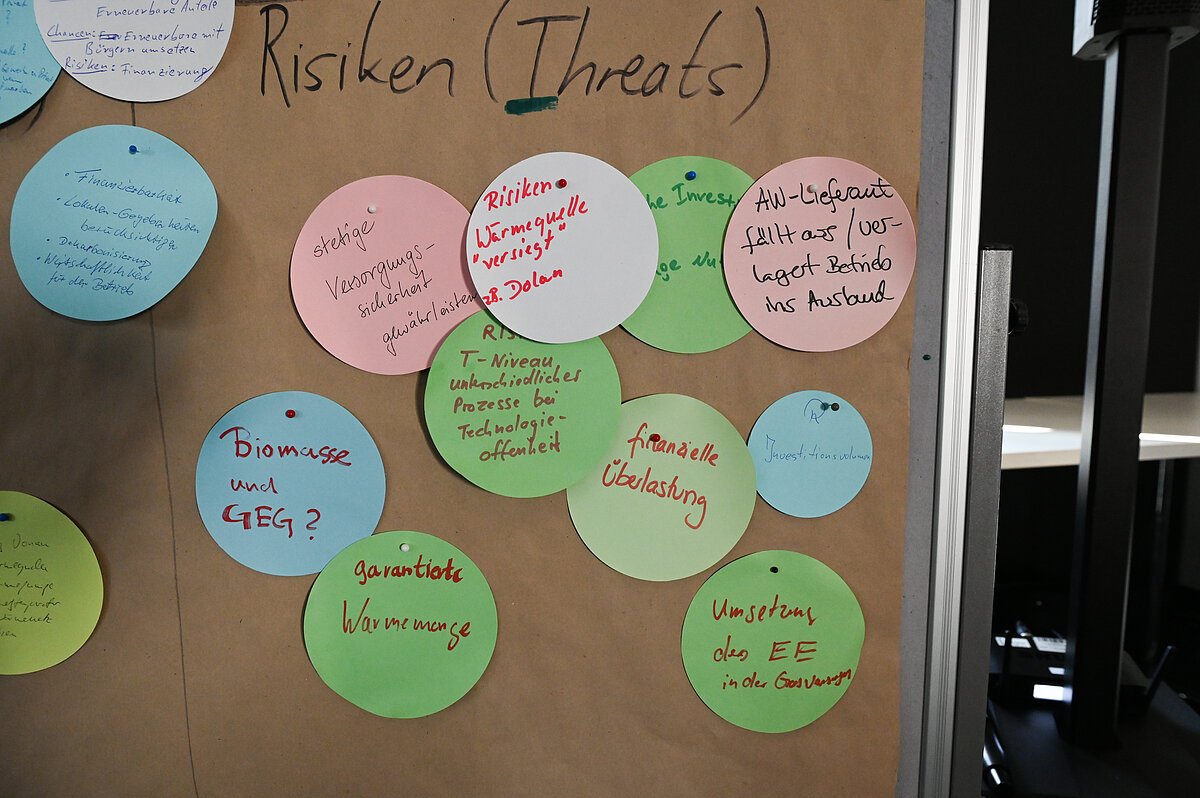 Erneuerbare Anteile
Chancen: Erneuerbare mit
Bürgern umsetzen
Risiken: Finanzierung
Risiken (Threats)
• Finanzierbarkeit
• Lokalen Gegebenheiten
berücksichtigen
• Dekarbonisierung
• Wirtschaftlichkeit
für den Betrieb
stetige
Versorgungs-
sicherheit
gewährleisten
Risiken
Wärmequelle
"versiegt"
z.B. Dolan
he Invest
ge Nu
AW-Lieferant
fällt aus / ver-
lagert Betrieb
ins Ausland
Ris
T-Niveau
unterschiedlicher
Prozesse bei
Technologie-
offenheit
Biomasse
und
GEG?
finanzielle
Überlastung
Investitionsvolumen
garantierte
Wärmemenge
Umsetzung
der EE
in der Gasversorger